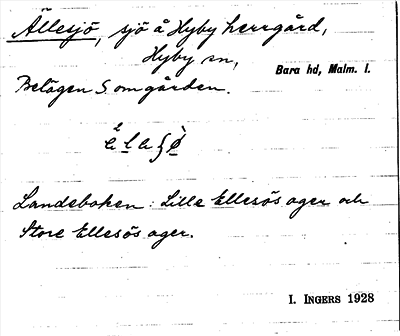 Ällesjö, sjö å Hyby herrgård,
Hyby sn,
Bara hd, Malm. l.
Belägen S om gården.
Landeboken: Lille Ellesös ager och
Store Ellesös ager.
I. INGERS 1928